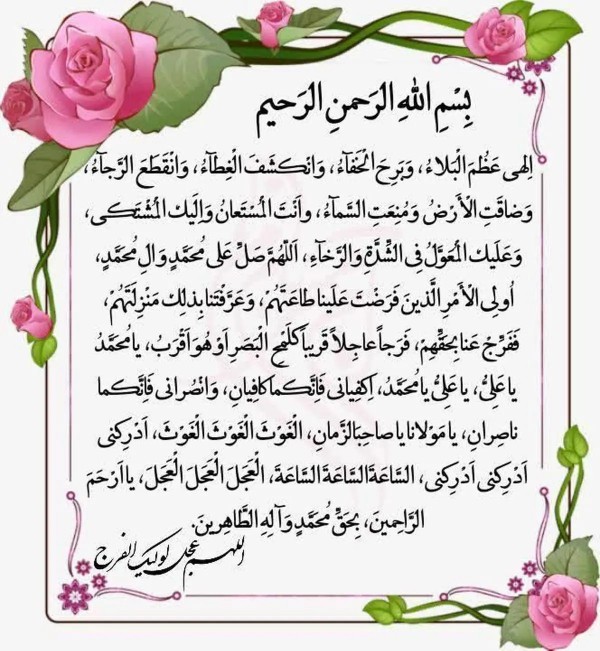 بِسْمِ اللهِ الرَحمنِ الرَحیم
اِلٰهی عَظُمَ الْبَلاءُ، وَبَرِحَ الْخَفآءُ، وَانْکَشَفَ الْغِطآءُ، وَانْقَطَعَ الرَّجآءُ،
وَضاقَتِ الْأَرْضُ وَمُنِعَتِ السَّمآءُ، وَأَنْتَ الْمُسْتَعانُ وَإِلَیْكَ الْمُشْتَکی،
وَعَلَیْكَ الْمُعَوَّلُ فِی الشِّدَّةِ وَالرَّخآءِ، اَللّهُمَّ صَلِّ عَلی مُحَمَّدٍ وَالِ مُحَمَّدٍ،
اُولِی الْأَمْرِ الَّذینَ فَرَضْتَ عَلَیْنا طاعَتَهُمْ، وَعَرَّفْتَنا بِذلِكَ مَنْزِلَتَهُمْ،
فَفَرِّجْ عَنا بِحَقِّهِمْ، فَرَجاً عاجِلاً قَریباً كَلَمْحِ الْبَصَرِ اَوْ هُوَ اَقْرَبُ، یا مُحَمَّدُ
یا عَلِیُّ، یا عَلِیُّ یا مُحَمَّدُ، اِکْفِیانی فَاِنَّکُما کافِیانِ، وَانْصُرانی فَاِنَّکُما
ناصِرانِ، یا مَوْلانا یا صاحِبَ الزَّمانِ، الْغَوْثَ الْغَوْثَ الْغَوْثَ، اَدْرِکْنی
اَدْرِکْنی اَدْرِکْنی، السّاعَةَ السّاعَةَ السّاعَةَ، الْعَجَلَ الْعَجَلَ الْعَجَلَ، یا اَرْحَمَ
الرّاحِمینَ، بِحَقِّ مُحَمَّدٍ وَآلِهِ الطّاهِرینَ.
اللهم عجل لولیك الفرج